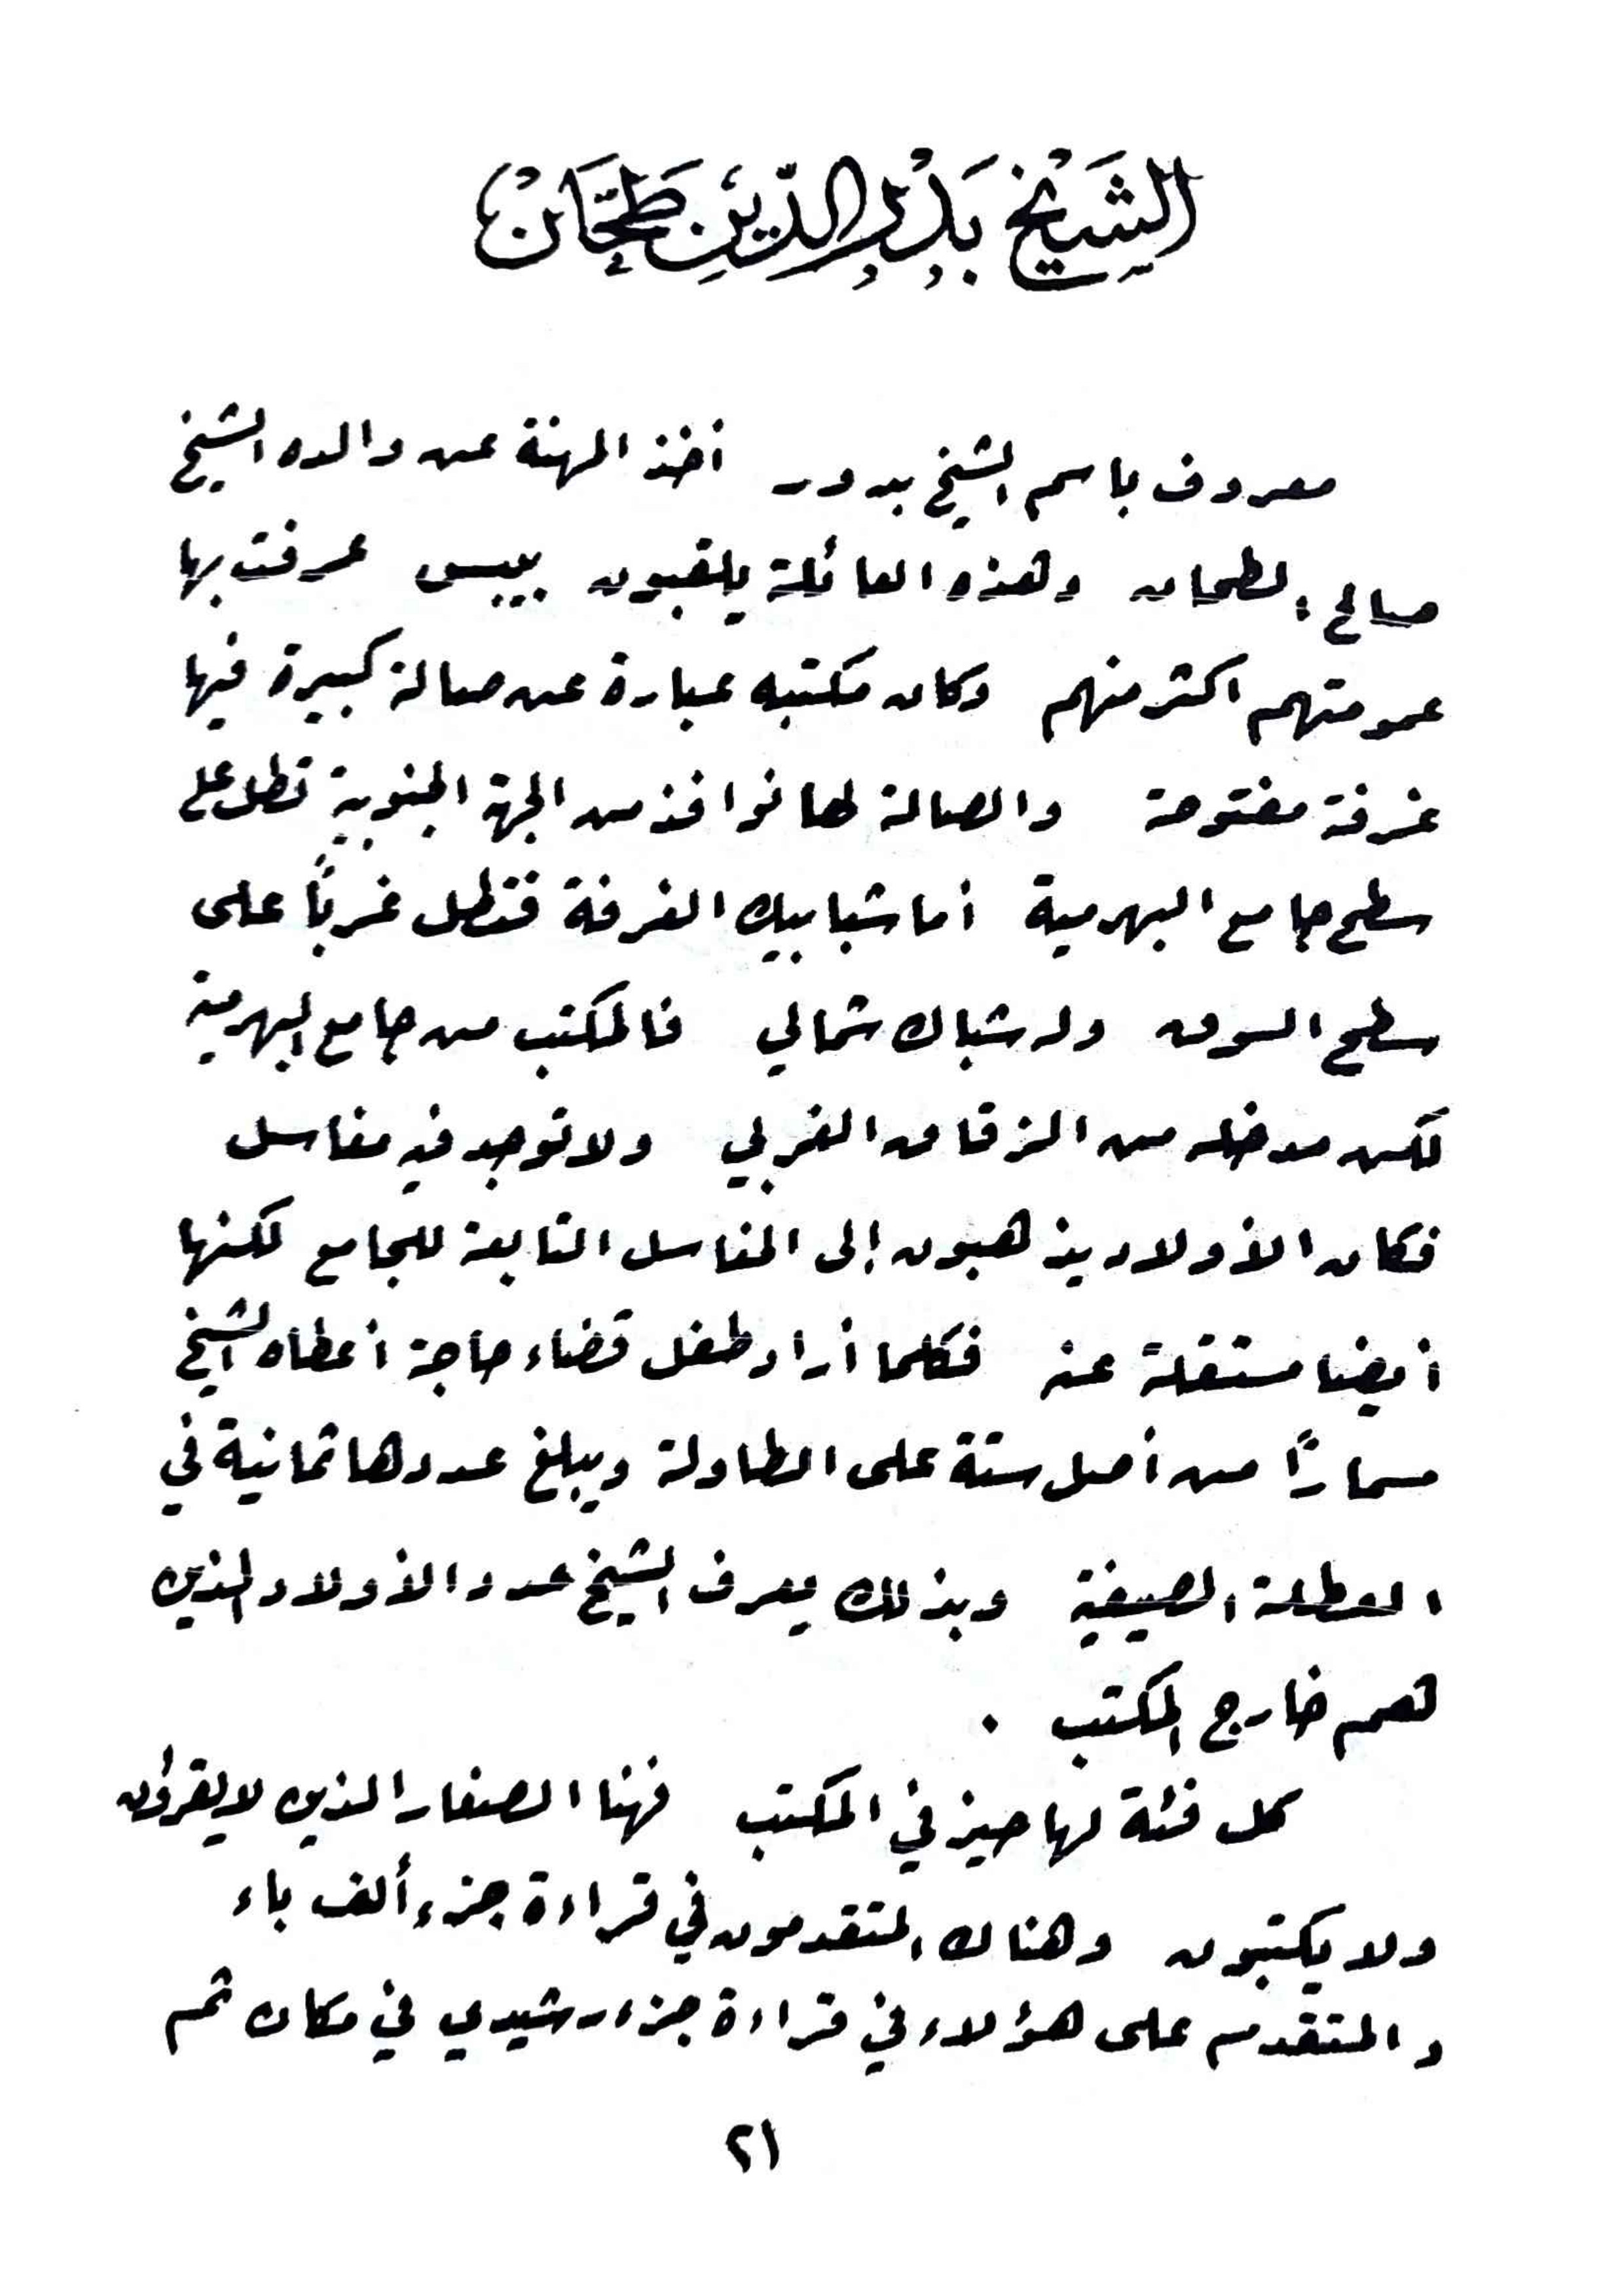 الشَيْخ بَدْرِ الدِّيْنِ طَحَّانْ
معروف باسم الشيخ بدور أخذ المهنة عن والده الشيخ
صالح الطحان وهذه العائلة يلقبون ببيس عرفت بها
عمومتهم اكثر منهم وكان مكتبه عبارة عن صالة كبيرة فيها
غرفة مفتوحة والصالة لها نوافذ من الجهة الجنوبية تطل على
سطح جامع البهرمية أما شبابيك الغرفة فتطل غرباً على
سطح السوق وله شباك شمالي فالمكتب من جامع البهرمية
لكن مدخله من الزقاق الغربي ولا توجد فيه مغاسل
فكان الأولاد يذهبون إلى المغاسل التابعة للجامع لكنها
أيضا مستقلة عنه فكلما أراد طفل قضاء حاجة أعطاه الشيخ
مسماراً من أصل ستة على الطاولة ويبلغ عددها ثمانية في
العطلة الصيفية وبذلك يعرف الشيخ عدد الأولاد الذين
هم خارج المكتب .
كل فئة لها حيز في المكتب فهنا الصغار الذين لا يقرؤن
ولا يكتبون وهناك المتقدمون في قراءة جزء ألف باء
والمتقدم على هؤلاء في قراءة جزء رشيدي في مكان ثم
٢١